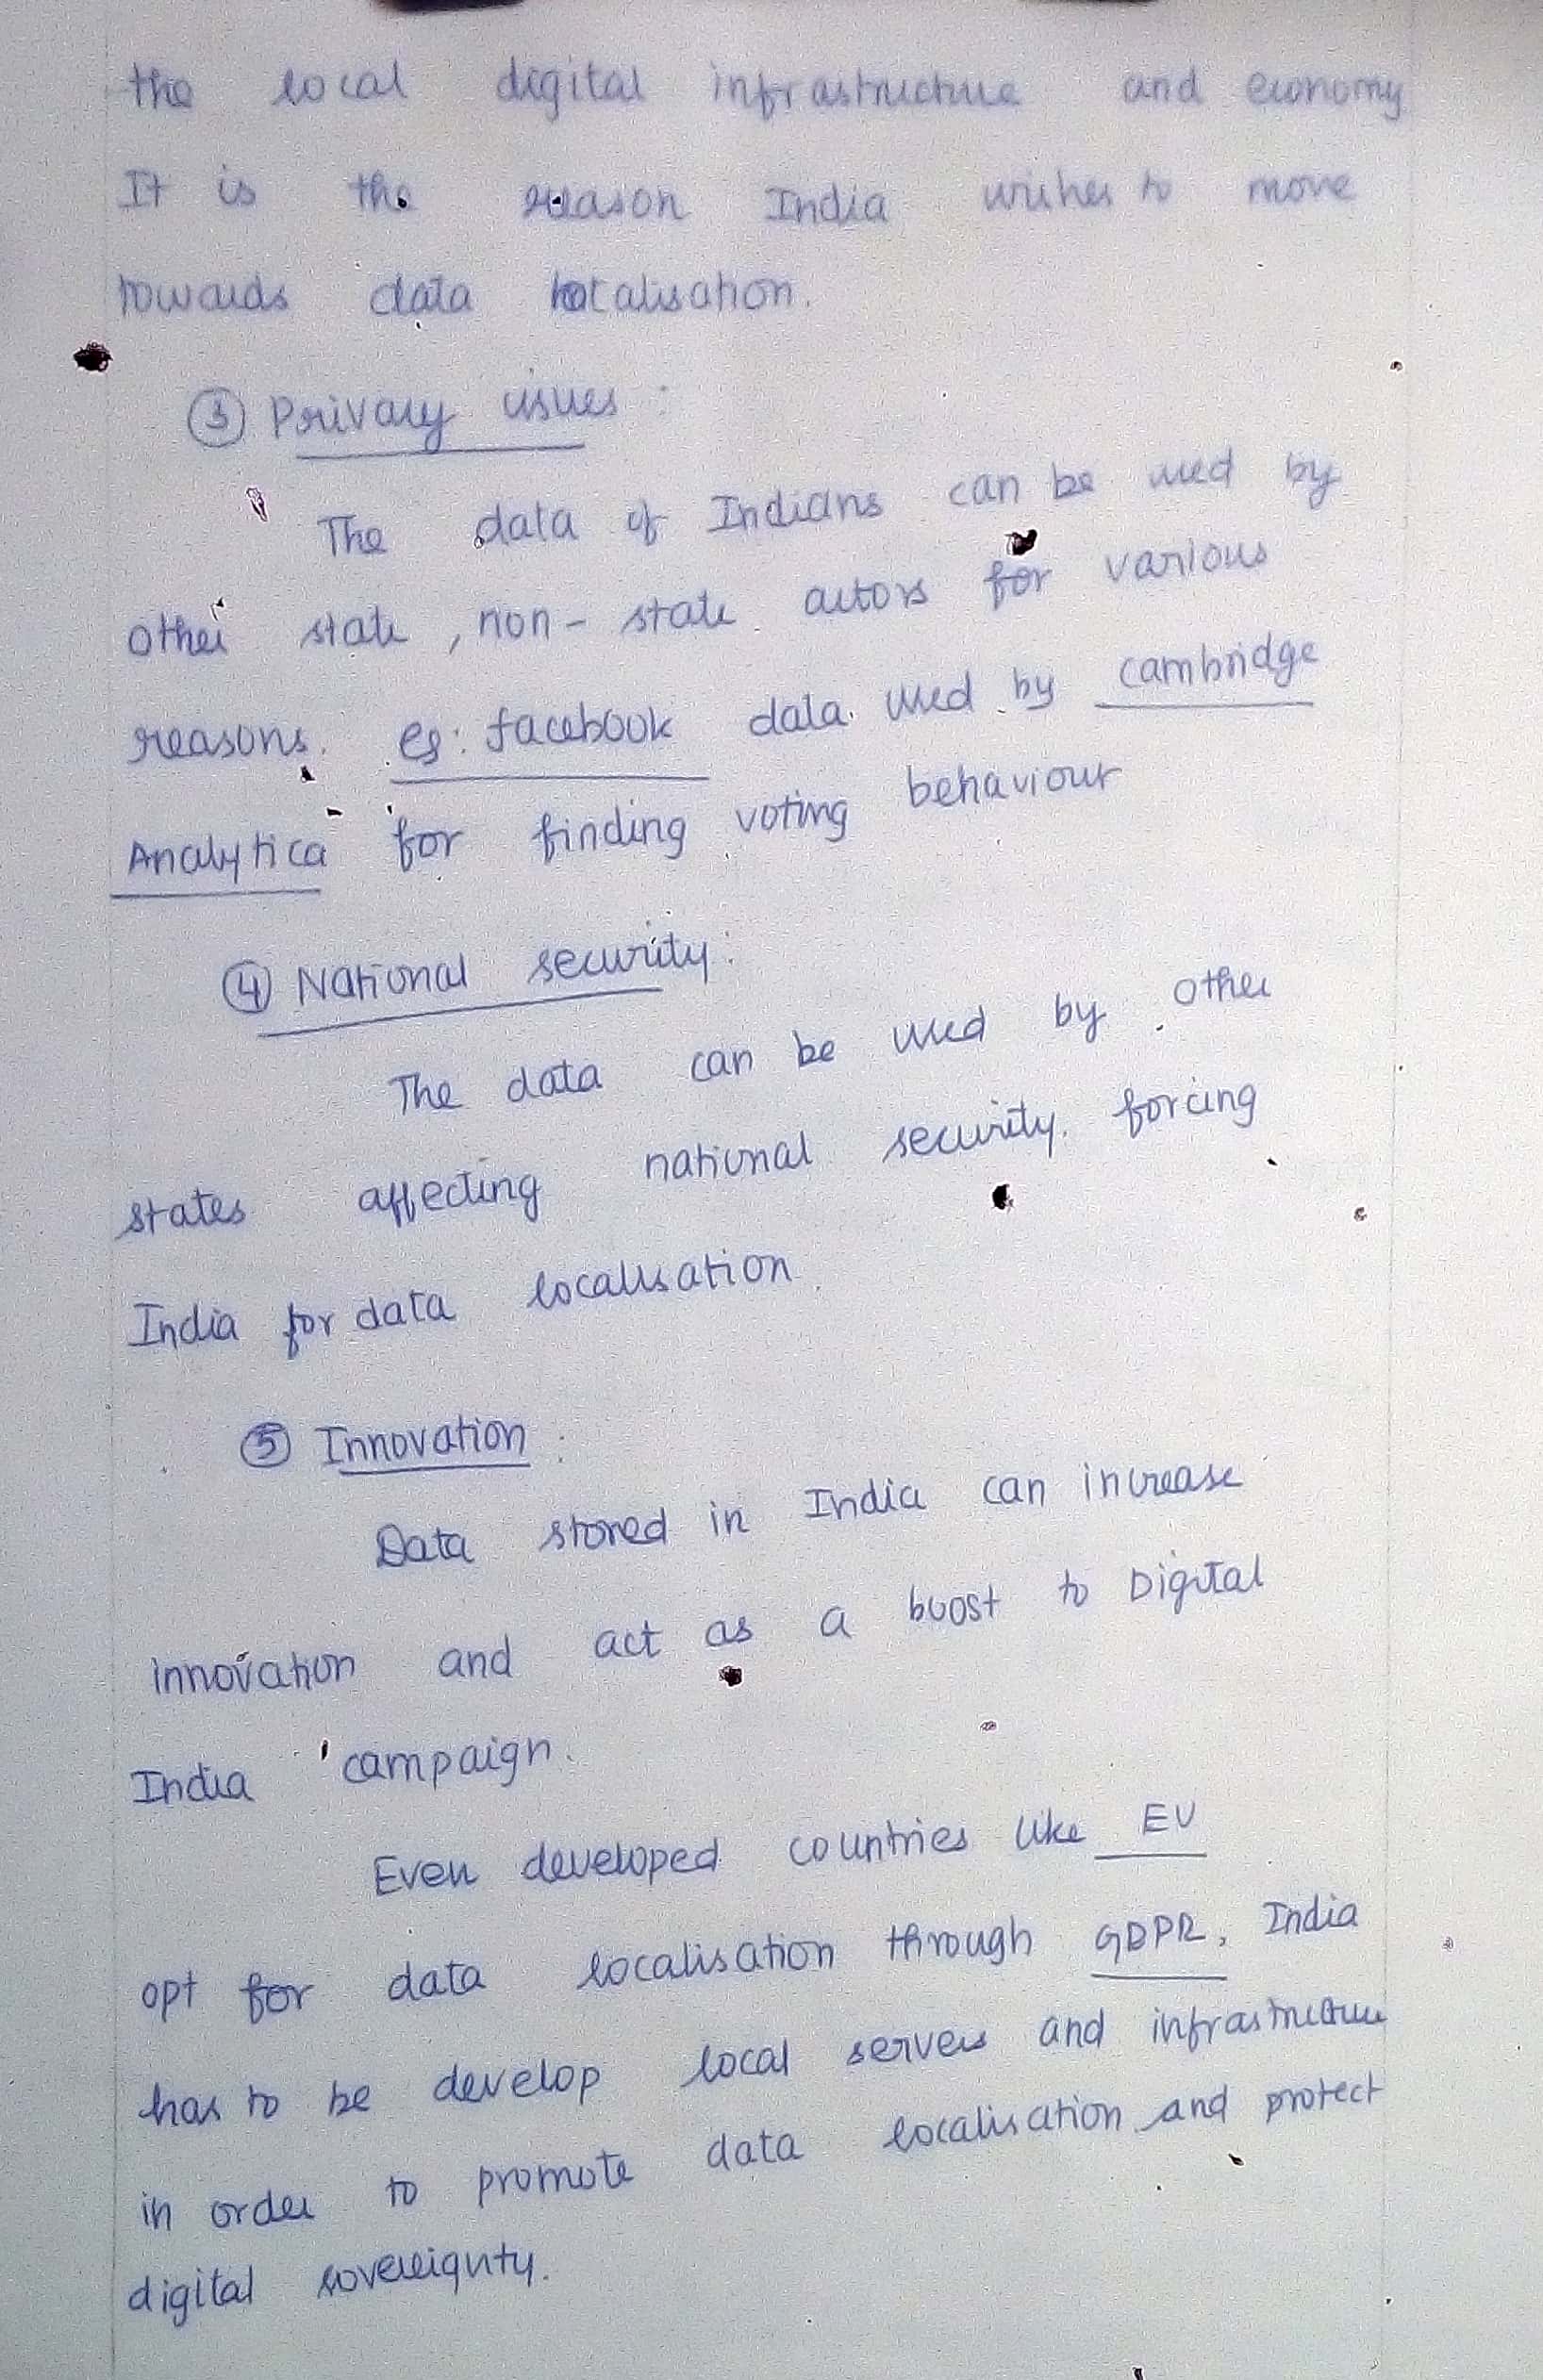 the local digital infrastructure and economy
It is the reason India wishes to move
towards data localisation.
③ Privacy issues :
The data of Indians can be used by
other state, non-state actors for various
reasons. eg: facebook data used by cambridge
Analytica for finding voting behaviour
④ National security:
The data can be used by other
states affecting national security. forcing
India for data localisation.
⑤ Innovation :
Data stored in India can increase
innovation and act as a boost to Digital
India campaign.
Even developed countries like EU
opt for data localisation through GDPR, India
has to be develop local servers and infrastructure
in order to promote data localisation and protect
digital sovereignty.